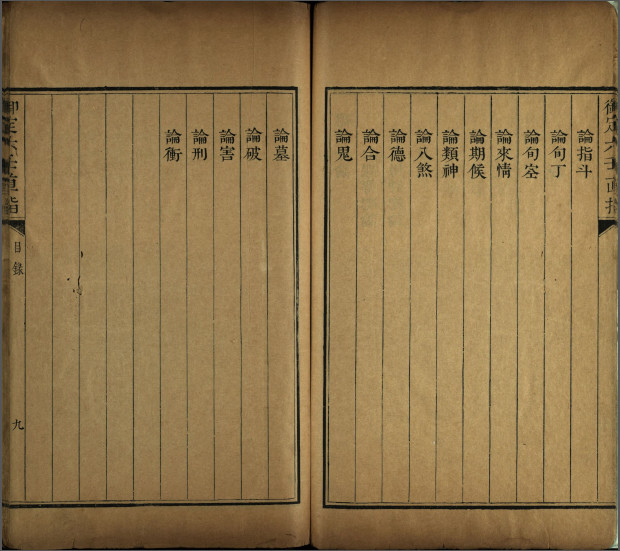 御定六壬直指
論指斗
論旬丁
論旬空
論來情
論期候
論類神
論八煞
論德
論合
論鬼
論墓
論破
論害
論刑
論衝
御定六壬直指
目錄
九